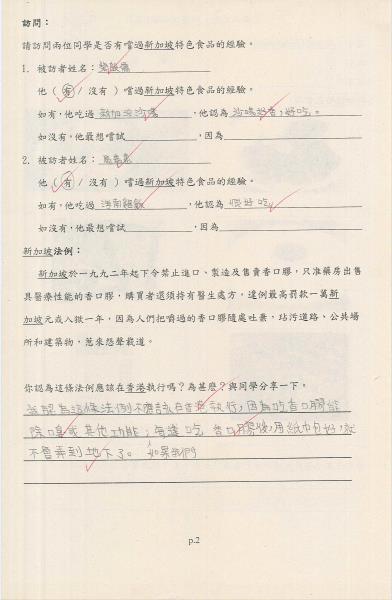 訪問：
請訪問兩位同學是否有嚐過新加坡特色食品的經驗。
1. 被訪者姓名：
他（有/沒有）嚐過新加坡特色食品的經驗。
如有，他吃過 新加坡沙嗲，他認為 沙嗲超香，好吃。
如沒有，他最想嚐試，因為
2. 被訪者姓名：
他（有/沒有）嚐過新加坡特色食品的經驗。
如有，他吃過 海南雞飯，他認為 很好吃
如沒有，他最想嚐試，因為
新加坡法例：
新加坡於一九九二年起下令禁止進口、製造及售賣香口膠，只准藥房出售
具醫療性能的香口膠，購買者還須持有醫生處方，違例最高罰款一萬新
加坡元或入獄一年，因為人們把嚼過的香口膠隨處吐棄，玷污道路、公共場
所和建築物，惹來怨聲載道。
你認為這條法例應該在香港執行嗎？為甚麼？與同學分享一下。
我認為這條法例不應該在香港執行，因為吃香口膠能
除口臭或其他功能；每送吃香口膠後，用紙巾包好，就
不會弄到地下了。如果我們
p.2